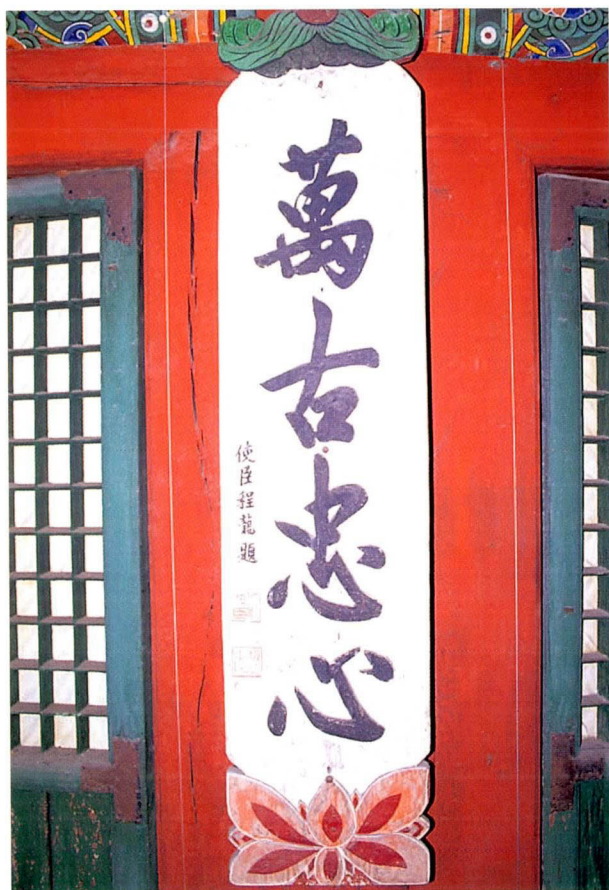 萬古忠心
使臣程龍題